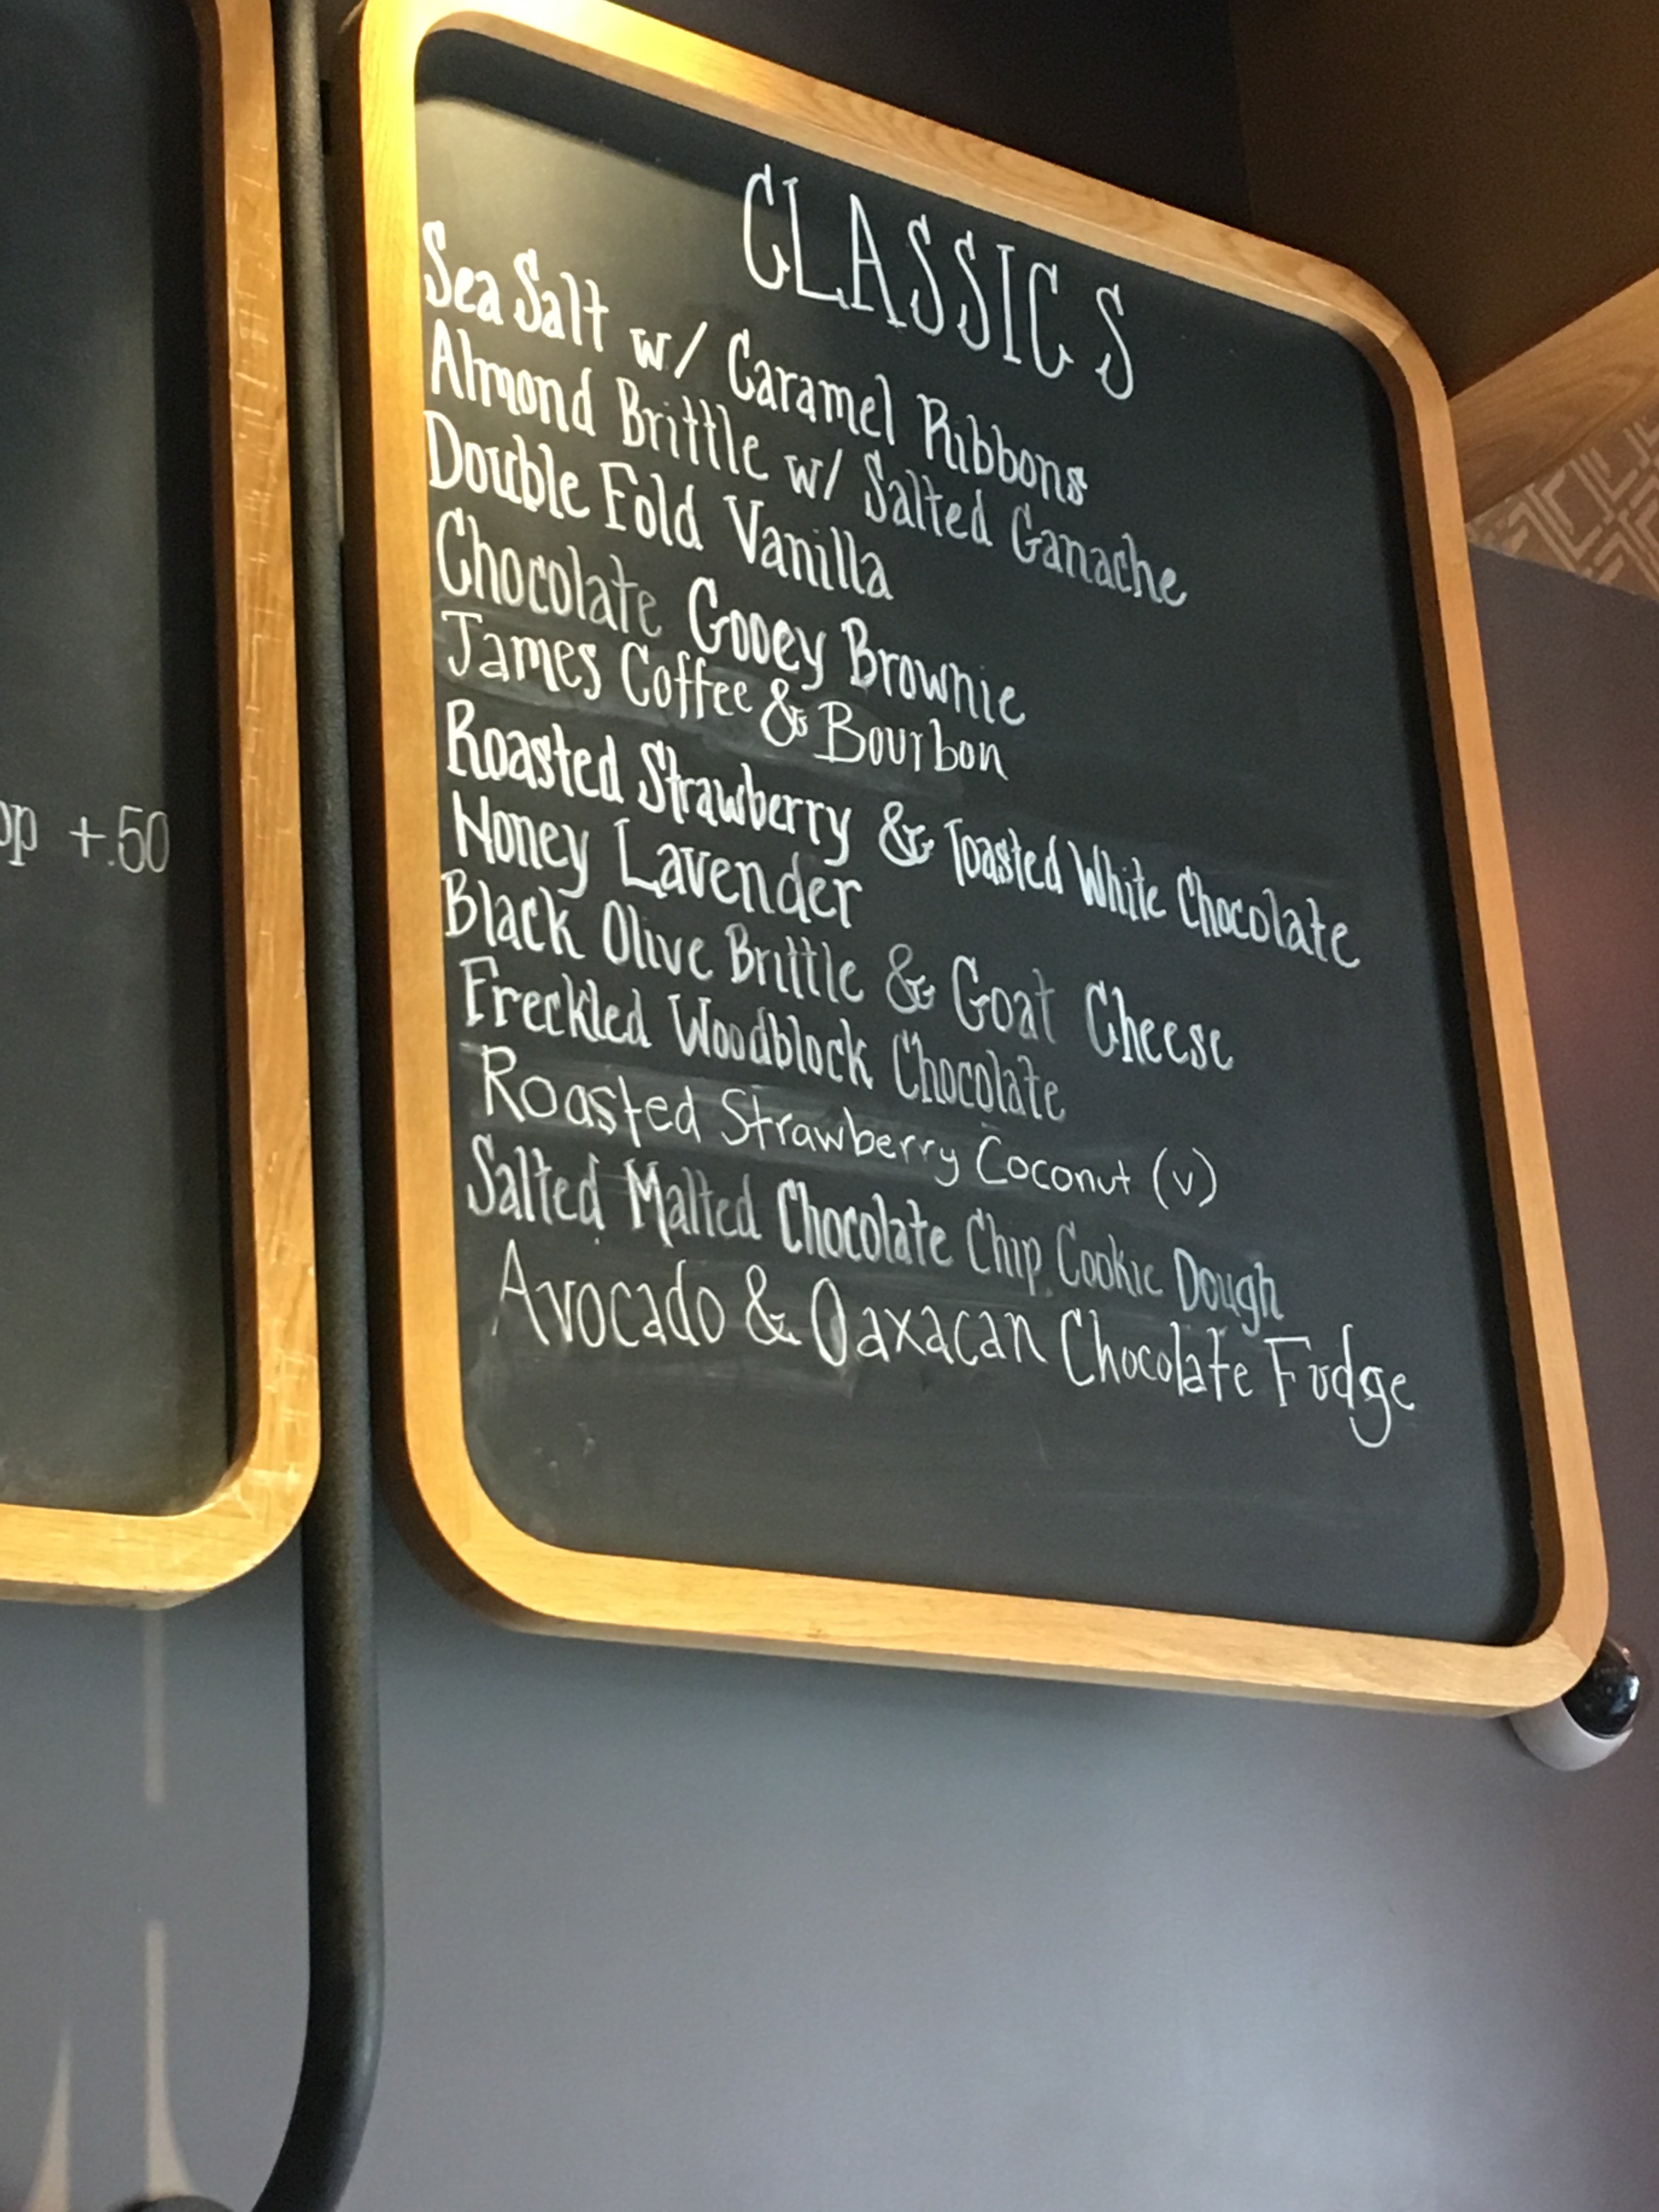 CLASSICS
Sea Salt w/ Caramel Ribbons
Almond Brittle w/ Salted Ganache
Double Fold Vanilla
Chocolate Gooey Brownie
James Coffee & Bourbon
Roasted Strawberry & Toasted White Chocolate
Honey Lavender
Black Olive Brittle & Goat Cheese
Freckled Woodblock Chocolate
Roasted Strawberry Coconut (v)
Salted Malted Chocolate Chip Cookie Dough
Avocado & Oaxacan Chocolate Fudge
+.50